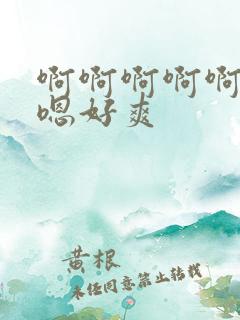 啊啊啊啊啊
嗯好爽
黄根
未经同意禁止转载